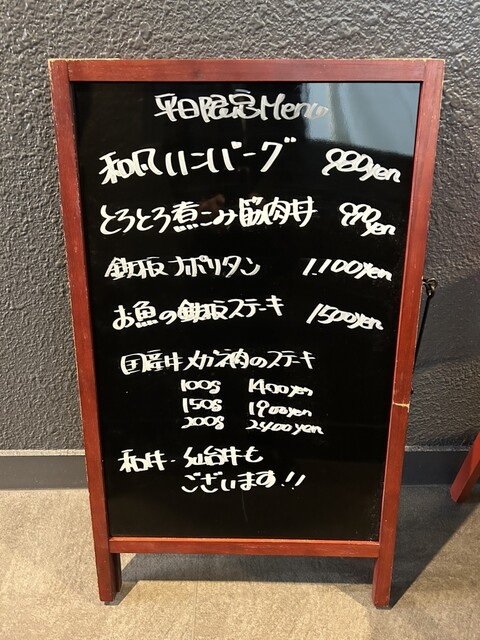 平日限定Menu
和風ハンバーグ 980yen
とろとろ煮こみ筋肉丼 990yen
鉄板ナポリタン 1.100yen
お魚の鉄板ステキ 1500yen
国産牛メガネ肉のステキ
100g 1400yen
150g 1900yen
200g 2400yen
和牛・仙台牛も
ございます!!